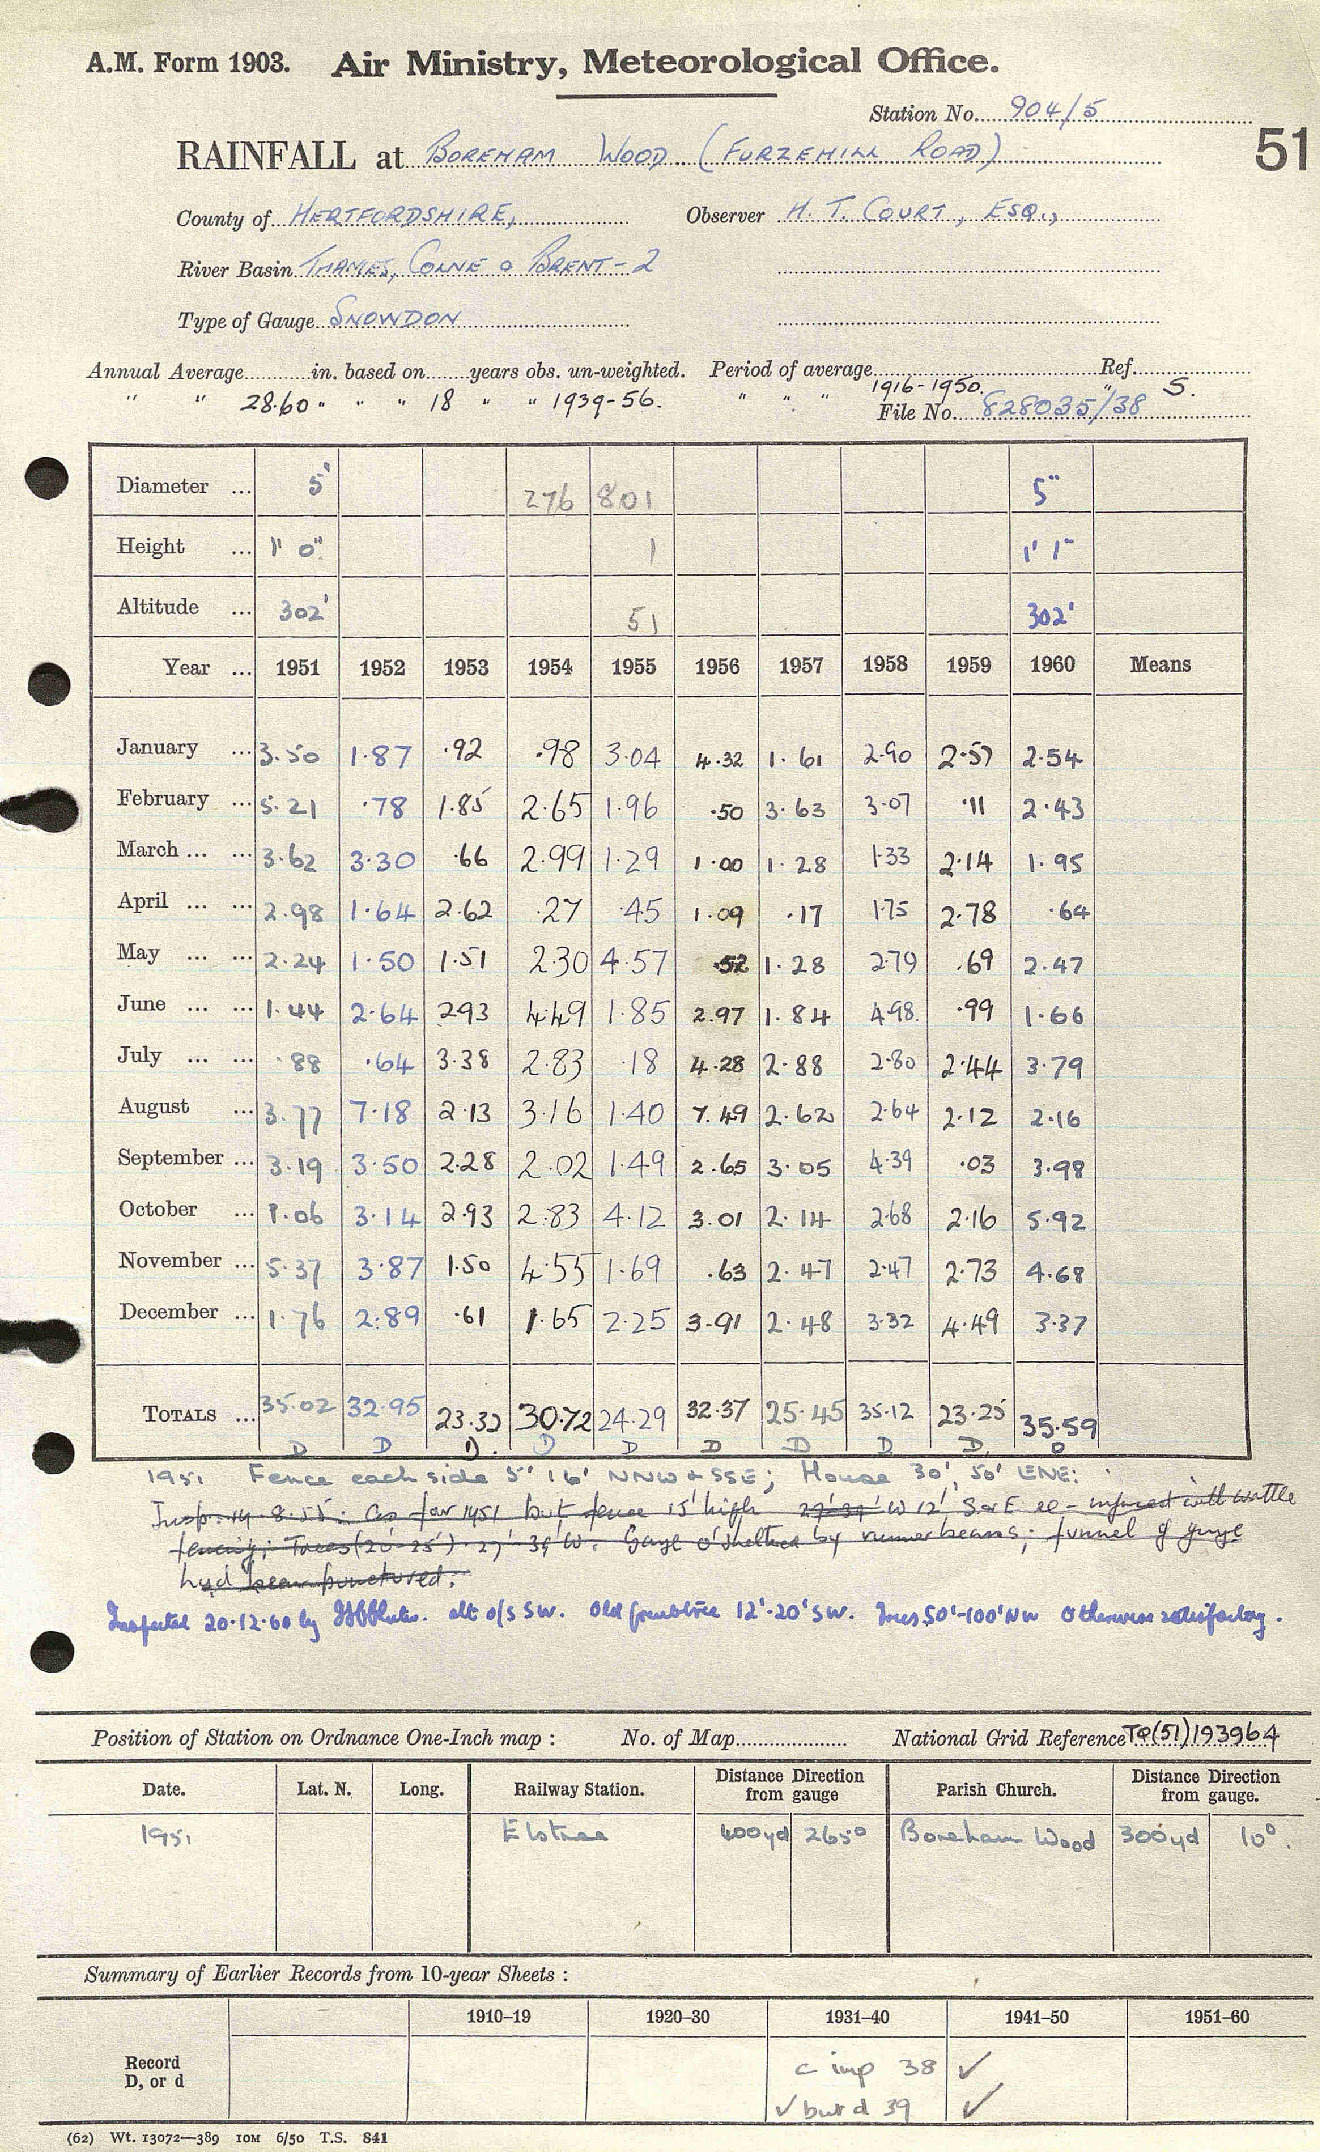 A.M. Form 1903. Air Ministry, Meteorological Office.
Station No. 904/5
51
RAINFALL at BOREHAM WOOD (FURZEHILL ROAD)
County of HERTFORDSHIRE, Observer H. T. COURT, ESQ.,
River Basin THAMES, COLNE & BRENT-2
Type of Gauge SNOWDON
Annual Average in. based on years obs. un-weighted. Period of average Ref.
" " 28.60 " " " 18 " " 1939-56. " " " 1916-1950. " S.
File No. 828035/38
Diameter ... 5" 276 801 5"
Height ... 1' 0" 1 1' 1"
Altitude ... 302' 51 302'
Year ... 1951 1952 1953 1954 1955 1956 1957 1958 1959 1960 Means
January ... 3.50 1.87 .92 .98 3.04 4.32 1.61 2.90 2.57 2.54
February ... 5.21 .78 1.85 2.65 1.96 .50 3.63 3.07 .11 2.43
March ... ... 3.62 3.30 .66 2.99 1.29 1.00 1.28 1.33 2.14 1.95
April ... ... 2.98 1.64 2.62 .27 .45 1.09 .17 1.75 2.78 .64
May ... ... 2.24 1.50 1.51 2.30 4.57 .52 1.28 2.79 .69 2.47
June ... ... 1.44 2.64 2.93 4.49 1.85 2.97 1.84 4.98 .99 1.66
July ... ... .88 .64 3.38 2.83 .18 4.28 2.88 2.80 2.44 3.79
August ... 3.77 7.18 2.13 3.16 1.40 7.49 2.62 2.64 2.12 2.16
September ... 3.19 3.50 2.28 2.02 1.49 2.65 3.05 4.39 .03 3.98
October ... 1.06 3.14 2.93 2.83 4.12 3.01 2.14 2.68 2.16 5.92
November ... 5.37 3.87 1.50 4.55 1.69 .63 2.47 2.47 2.73 4.68
December ... 1.76 2.89 .61 1.65 2.25 3.91 2.48 3.32 4.49 3.37
TOTALS ... 35.02 32.95 23.32 30.72 24.29 32.37 25.45 35.12 23.25 35.59
D D D. D D D D D D. D
1951 Fence each side 5' 16' NNW & SSE; House 30', 50' ENE:
Insp. 14.8.55: As for 1951 but fence 15' high W 12' S & E - with wattle
fencing; Trees (20'-25') 27'-39' W. Gauge o'sheltered by runner beans; funnel of gauge
had been punctured.
Inspected 20.12.60 by alt O/S SW. Old 12'-20' SW. Trees 50'-100' NW Otherwise satisfactory.
Position of Station on Ordnance One-Inch map : No. of Map National Grid Reference TQ(51)193964
Date. Lat. N. Long. Railway Station. Distance from gauge Direction Parish Church. Distance from gauge. Direction
1951 Elstree 400yd 265° Boreham Wood 300yd 10°.
Summary of Earlier Records from 10-year Sheets :
1910–19 1920–30 1931–40 1941–50 1951–60
Record D, or d c imp 38 ✓
✓ but d 39 ✓
(62) Wt. 13072—389 10M 6/50 T.S. 841